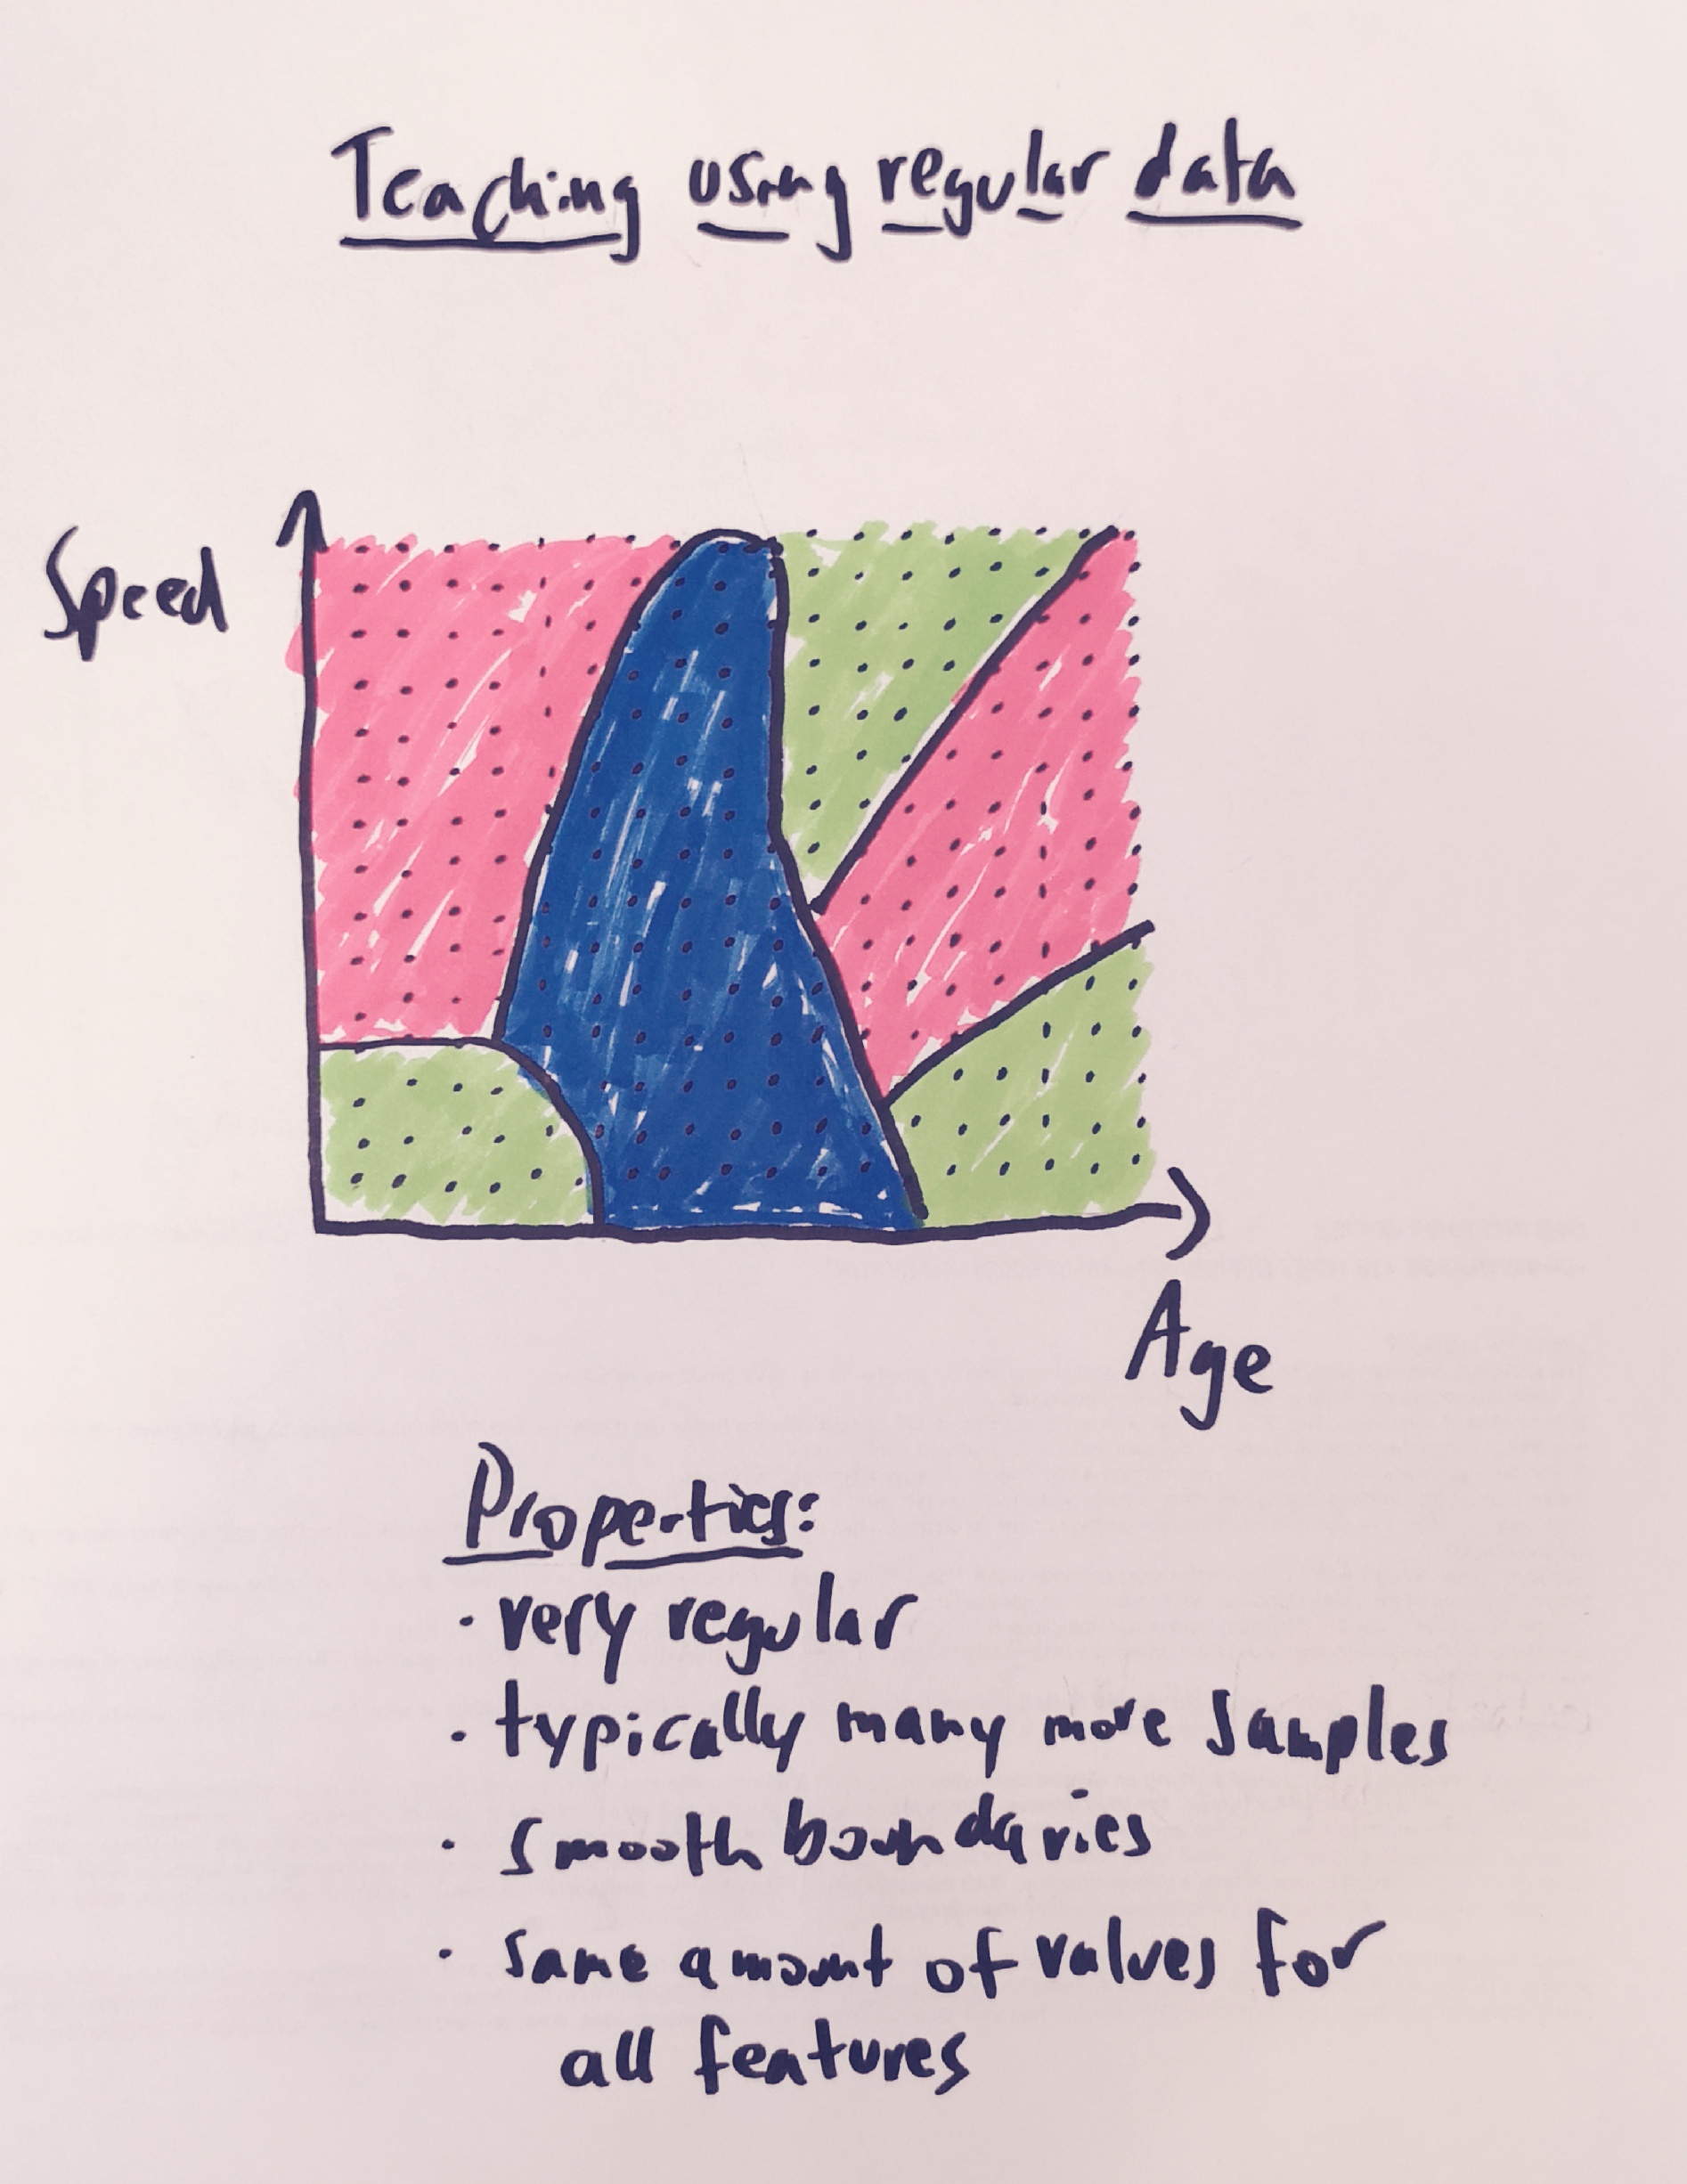 Teaching using regular data
Speed
Age
Properties:
· very regular
· typically many more samples
· smooth boundaries
· same amount of values for
all features